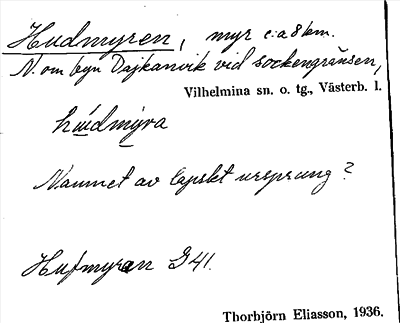 Hudmyren, myr c:a 8 km.
N. om byn Dajkanvik vid sockengränsen,
Vilhelmina sn. o. tg., Västerb. l.
Namnet av lapskt ursprung?
Hufmyren G 41.
Thorbjörn Eliasson, 1936.